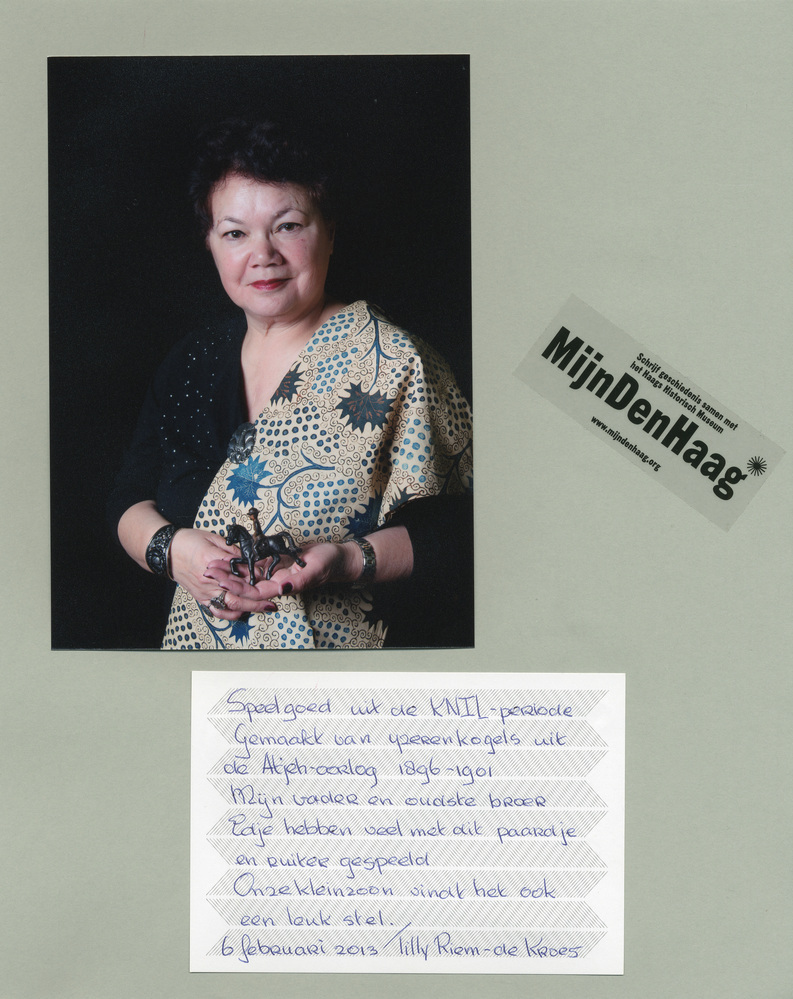 Schrijf geschiedenis samen met
het Haags Historisch Museum
MijnDenHaag
www.mijndenhaag.org
Speelgoed uit de KNIL-periode
Gemaakt van yzeren kogels uit
de Atjeh-oorlog 1896-1901
Mijn vader en oudste broer
Edje hebben veel met dit paardje
en ruiter gespeeld
Onze kleinzoon vindt het ook
een leuk stel.
6 februari 2013 / Tilly Riem-de Kroes